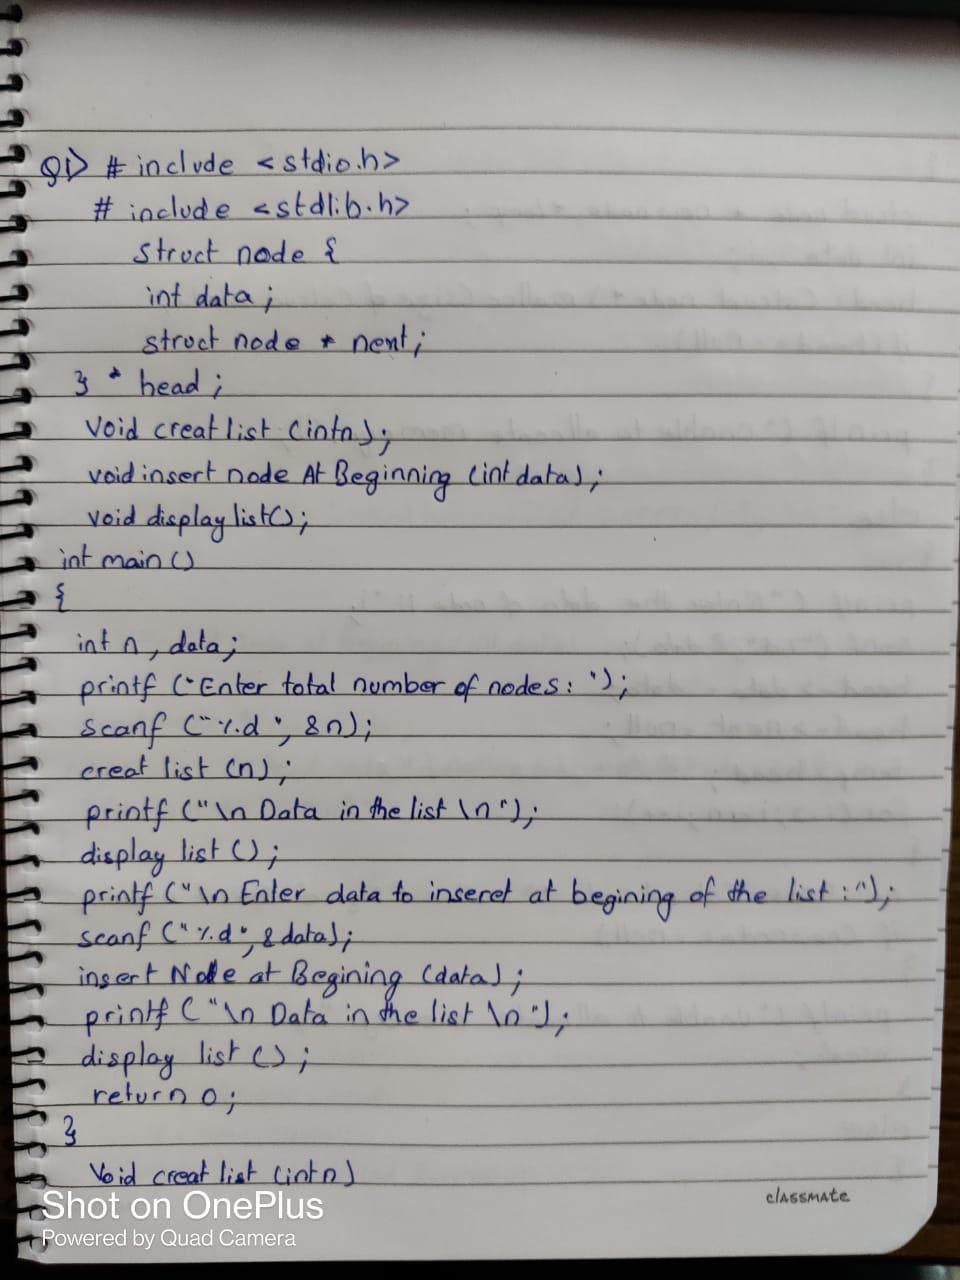 Q1> # include <stdio.h>
# include <stdlib.h>
struct node {
int data ;
struct node * next ;
} * head ;
Void creat list (int n) ;
void insert node At Beginning (int data) ;
void display list() ;
int main ()
{
int n , data ;
printf ("Enter total number of nodes : ") ;
scanf ("%d", &n) ;
creat list (n) ;
printf ("\n Data in the list \n") ;
display list () ;
printf ("\n Enter data to inseret at begining of the list :") ;
scanf ("%d", &data) ;
insert Node at Begining (data) ;
printf ("\n Data in the list \n") ;
display list () ;
return 0 ;
}
Void creat list (int n)
classmate
Shot on OnePlus
Powered by Quad Camera